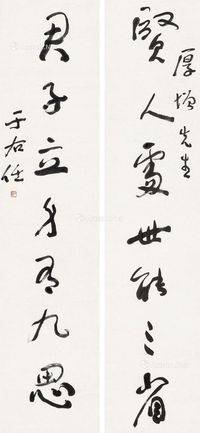 厚增先生
賢人處世能三省
君子立身有九思
于右任